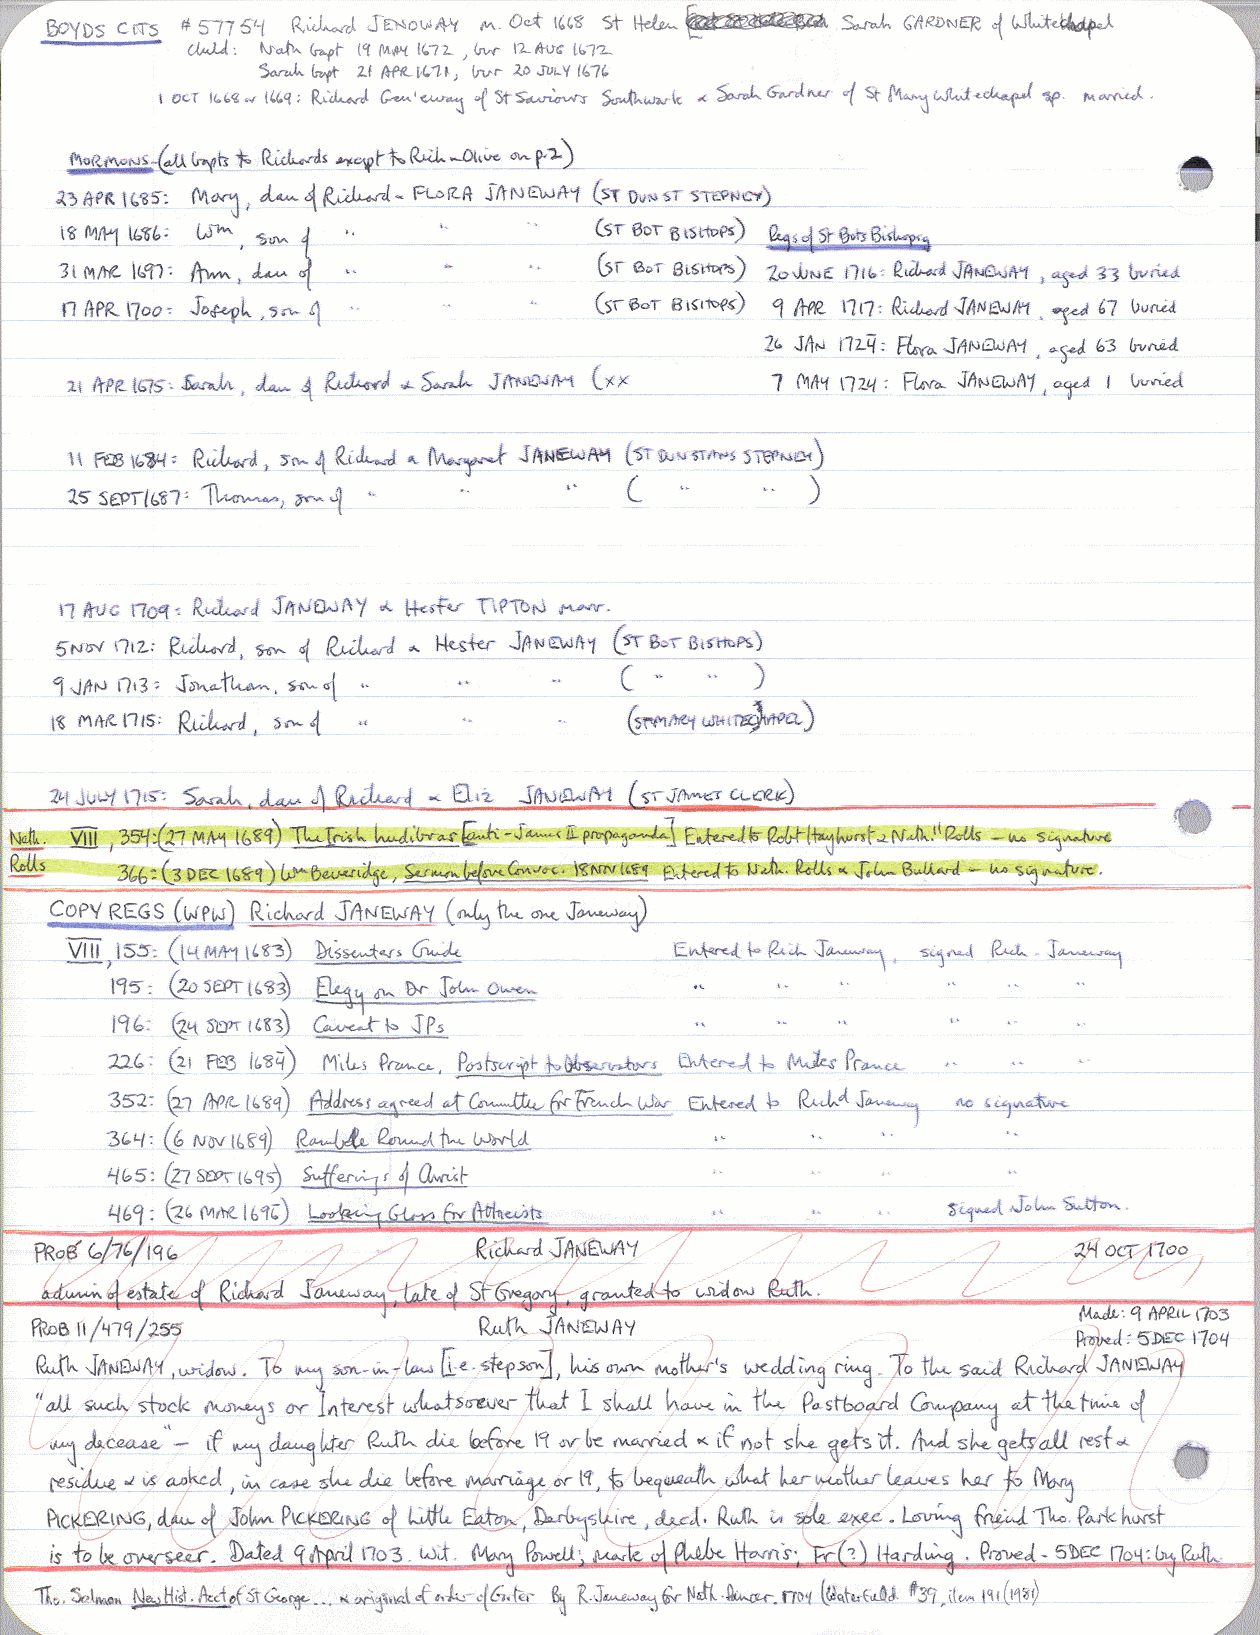 BOYDS CITS #57754 Richard JENOWAY m. Oct 1668 St Helen Sarah GARDNER of Whitechapel
child: Nath bapt 19 MAY 1672, bur 12 AUG 1672
Sarah bapt 21 APR 1671, bur 20 JULY 1676
1 OCT 1668 or 1669: Richard Gen'eway of St Saviours Southwark & Sarah Gardner of St Mary Whitechapel sp. married.
MORMONS (all bapts to Richards except to Rich & Olive on p.2)
23 APR 1685: Mary, dau of Richard & FLORA JANEWAY (ST DUN ST STEPNEY)
18 MAY 1686: Wm, son of " " " (ST BOT BISHOPS) Regs of St Bots Bishopsg
31 MAR 1697: Ann, dau of " " " (ST BOT BISHOPS) 20 JUNE 1716: Richard JANEWAY, aged 33 buried
17 APR 1700: Joseph, son of " " " (ST BOT BISHOPS) 9 APR 1717: Richard JANEWAY, aged 67 buried
26 JAN 1724: Flora JANEWAY, aged 63 buried
21 APR 1675: Sarah, dau of Richard & Sarah JANEWAY (xx 7 MAY 1724: Flora JANEWAY, aged 1 buried
11 FEB 1684: Richard, son of Richard & Margaret JANEWAY (ST DUNSTANS STEPNEY)
25 SEPT 1687: Thomas, son of " " " ( " " )
17 AUG 1709: Richard JANEWAY & Hester TIPTON marr.
5 NOV 1712: Richard, son of Richard & Hester JANEWAY (ST BOT BISHOPS)
9 JAN 1713: Jonathan, son of " " " ( " " )
18 MAR 1715: Richard, son of " " " (ST MARY WHITECHAPEL)
24 JULY 1715: Sarah, dau of Richard & Eliz JANEWAY (ST JAMES CLERK)
Nath. VIII, 354: (27 MAY 1689) The Irish hudibras [anti-James II propaganda] Entered to Robt Hayhurst & Nath.ll Rolls - no signature
Rolls 366: (3 DEC 1689) Wm Beveridge, Sermon before Convoc. 18 NOV 1689 Entered to Nath. Rolls & John Bullard - no signature.
COPY REGS (WPW) Richard JANEWAY (only the one Janeway)
VIII, 155: (14 MAY 1683) Dissenters Guide Entered to Rich Janeway, signed Rich. Janeway
195: (20 SEPT 1683) Elegy on Dr John Owen " " " " " "
196: (24 SEPT 1683) Caveat to JPs " " " " " "
226: (21 FEB 1684) Miles Prance, Postscript to Observators Entered to Miles Prance " " "
352: (27 APR 1689) Address agreed at Committee for French War Entered to Richd Janeway no signature
364: (6 NOV 1689) Ramble Round the World " " " "
465: (27 SEPT 1695) Sufferings of Christ " " " "
469: (26 MAR 1696) Looking Glass for Atheists " " " signed John Sutton.
PROB 6/76/196 Richard JANEWAY 24 OCT 1700
admin of estate of Richard Janeway, late of St Gregory, granted to widow Ruth.
Made: 9 APRIL 1703
PROB 11/479/255 Ruth JANEWAY Proved: 5 DEC 1704
Ruth JANEWAY, widow. To my son-in-law [i.e. stepson], his own mother's wedding ring. To the said Richard JANEWAY
"all such stock moneys or Interest whatsoever that I shall have in the Pastboard Company at the time of
my decease" - if my daughter Ruth die before 19 or be married & if not she gets it. And she gets all rest &
residue & is asked, in case she die before marriage or 19, to bequeath what her mother leaves her to Mary
PICKERING, dau of John PICKERING of Little Eaton, Derbyshire, decd. Ruth is sole exec. Loving friend Tho. Parkhurst
is to be overseer. Dated 9 April 1703. Wit. Mary Powell; mark of Phebe Harris; Er(?) Harding. Proved - 5 DEC 1704: by Ruth.
Tho. Salmon New Hist. Acct of St George... & original of order of Garter By R. Janeway for Nath. 1704 (Waterfield #39, item 191 (1981)